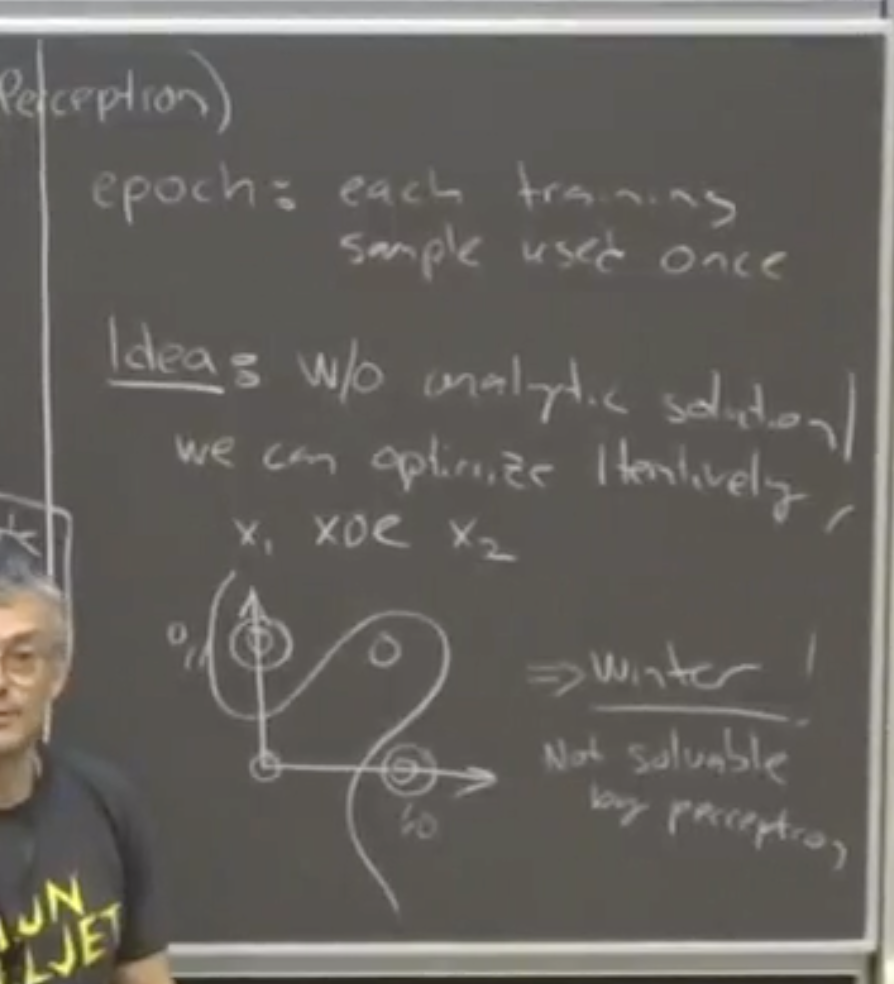 Perceptron)
epoch: each training
sample used once
Idea: w/o analytic solution
we can optimize iteratively,
x₁ XOR x₂
0,1
1,0
⇒ Winter!
Not solvable
by perceptron